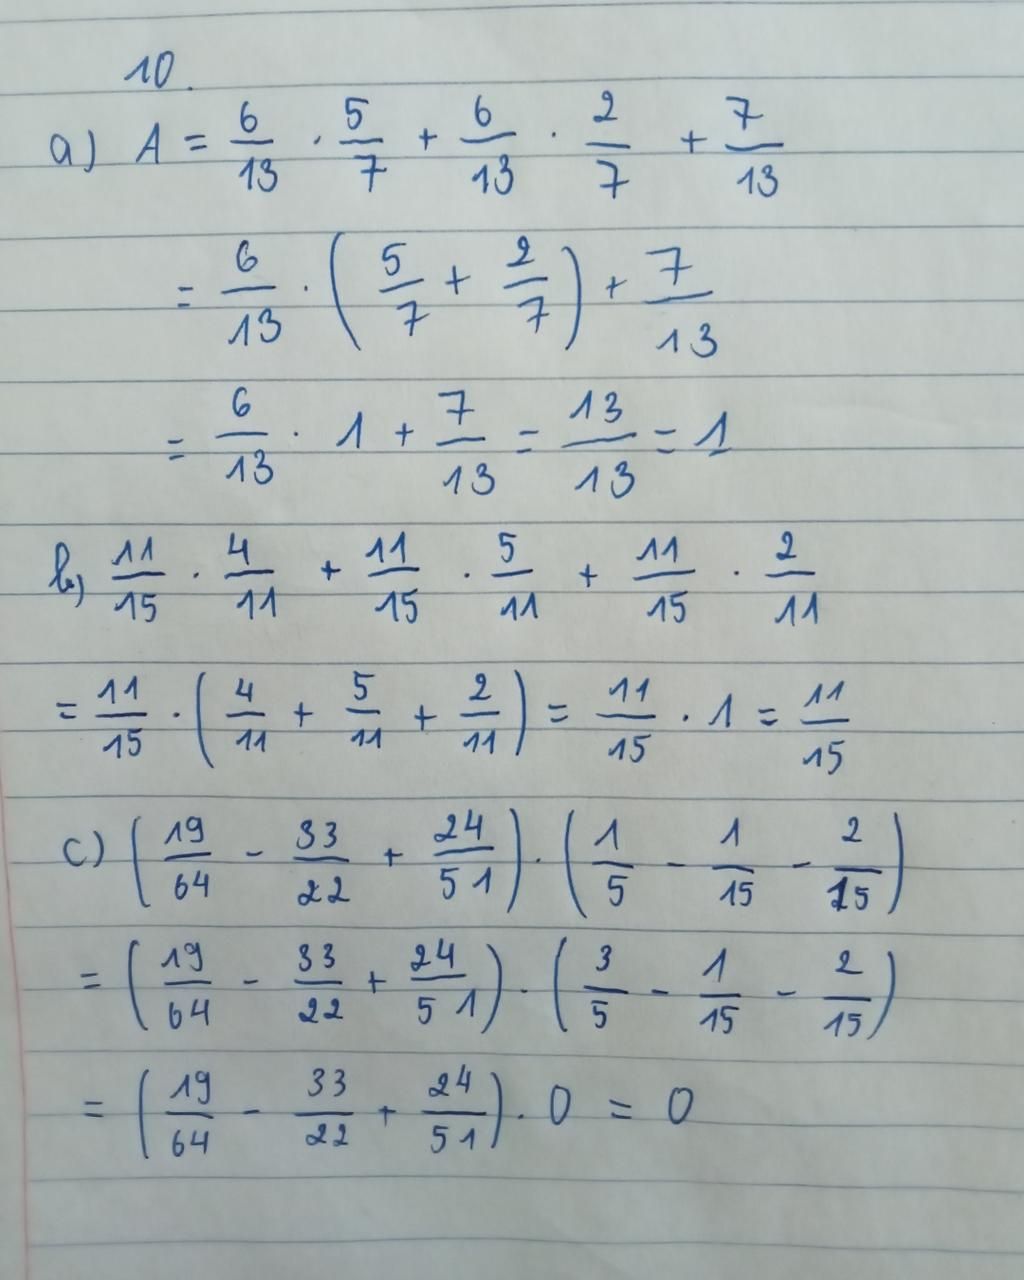 10.
a) A = 6/13 · 5/7 + 6/13 · 2/7 + 7/13
= 6/13 · (5/7 + 2/7) + 7/13
= 6/13 · 1 + 7/13 = 13/13 = 1
b) 11/15 · 4/11 + 11/15 · 5/11 + 11/15 · 2/11
= 11/15 · (4/11 + 5/11 + 2/11) = 11/15 · 1 = 11/15
c) (19/64 - 33/22 + 24/51) · (1/5 - 1/15 - 2/15)
= (19/64 - 33/22 + 24/51) · (3/5 - 1/15 - 2/15)
= (19/64 - 33/22 + 24/51) · 0 = 0